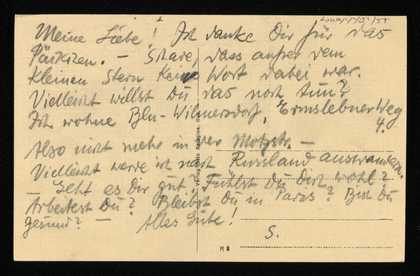 Meine Liebe! Ich danke Dir für das
Päckchen. – Schade, dass außer dem
kleinen Stern kein Wort dabei war.
Vielleicht willst Du das noch tun?
Ich wohne Bln-Wilmersdorf, Ermslebner Weg
4.
Also nicht mehr in der Motzstr. –
Vielleicht werde ich nach Russland auswandern.
– Geht es dir gut? Fühlst Du Dich wohl?
Arbeitest Du? Bleibst Du in Paris? Bist Du
gesund? – Alles Gute!
S.